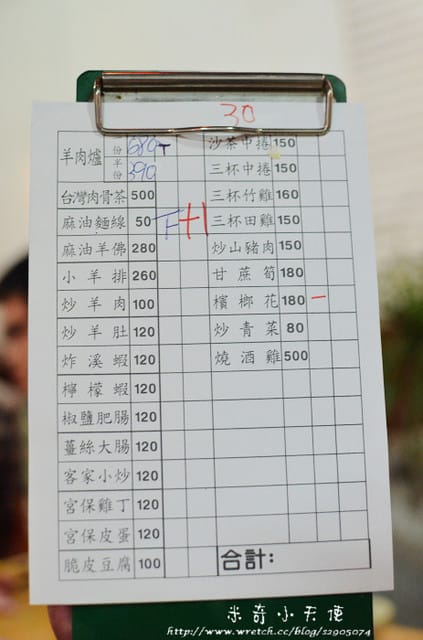 30
羊肉爐 份 680 T
半份 390
台灣肉骨茶 500
麻油麵線 50 下 +1
麻油羊佛 280
小羊排 260
炒羊肉 100
炒羊肚 120
炸溪蝦 120
檸檬蝦 120
椒鹽肥腸 120
薑絲大腸 120
客家小炒 120
宮保雞丁 120
宮保皮蛋 120
脆皮豆腐 100
沙茶中捲 150
三杯中捲 150
三杯竹雞 160
三杯田雞 150
炒山豬肉 150
甘蔗筍 180
檳榔花 180 一
炒青菜 80
燒酒雞 500
合計:
米奇小天使
http://www.wretch.cc/blog/22905074